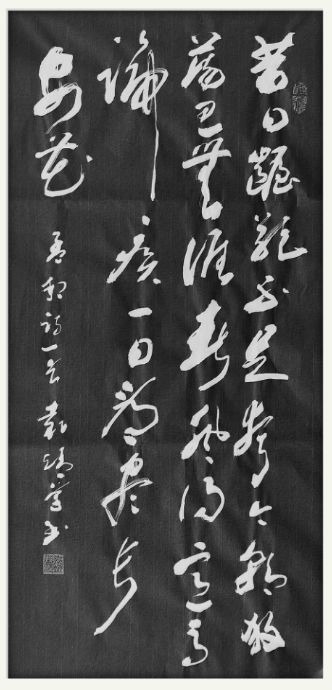 昔日齷齪不足夸今朝放
蕩思無涯春風得意馬
蹄疾一日看盡長
安花
孟郊詩一首 袁 書